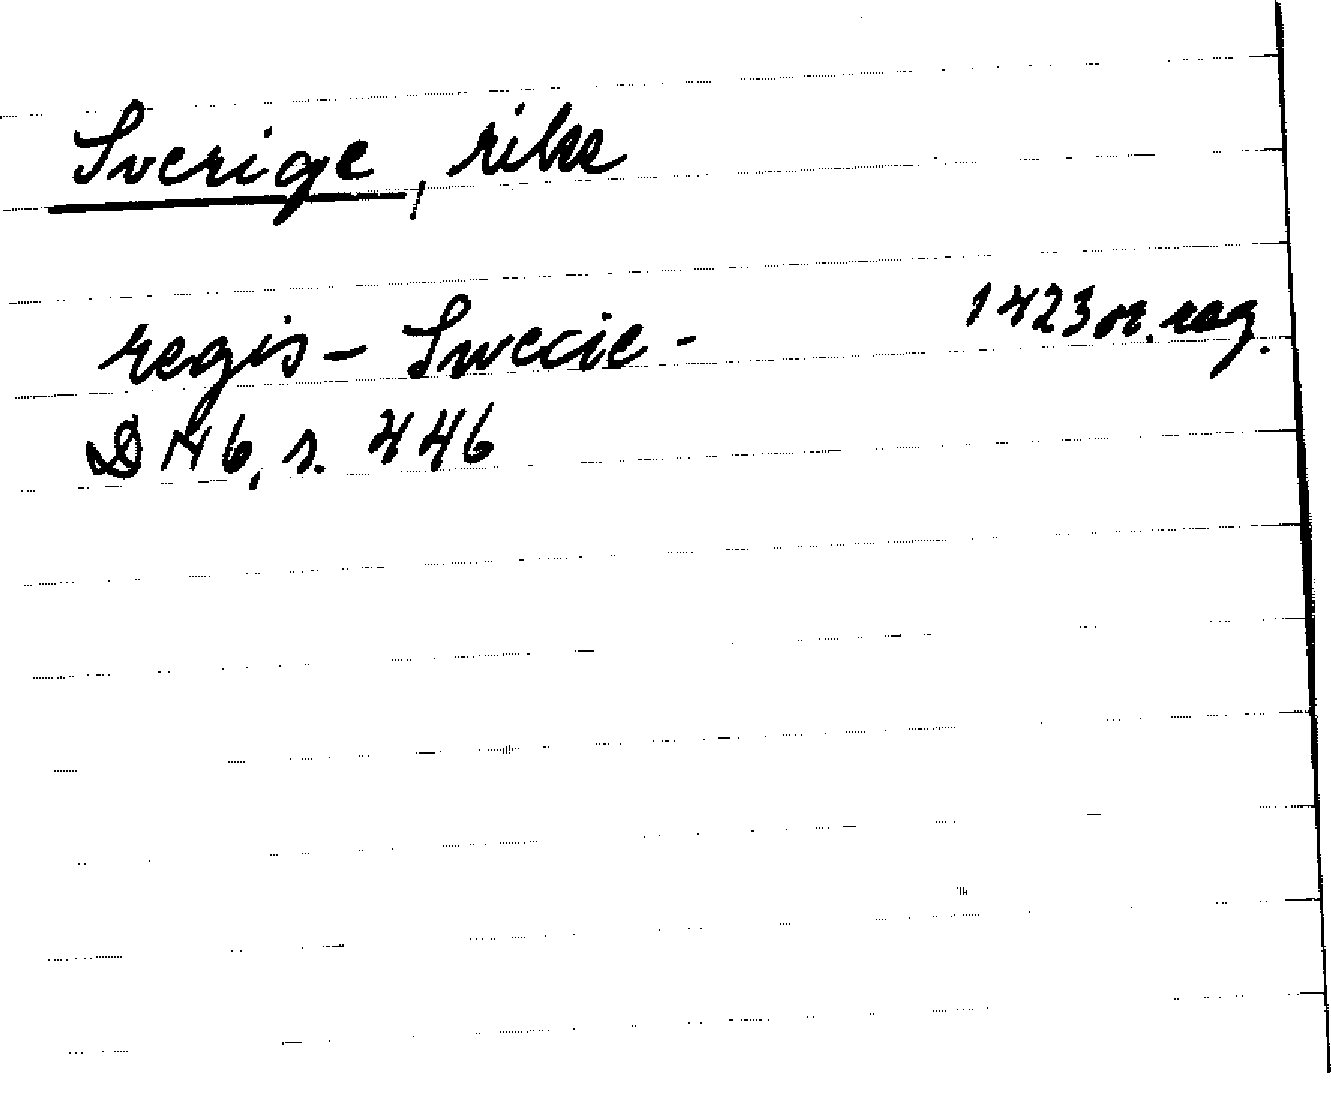 Sverige, rike
regis - Swecie - 1423 or. reg.
DN 6, s. 446